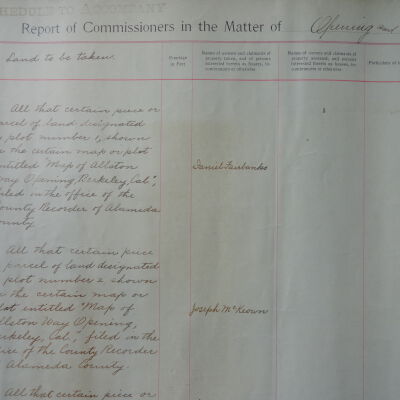 SCHEDULE TO ACCOMPANY
Report of Commissioners in the Matter of Opening and
Land to be taken.
Frontage in Feet
Names of owners and claimants of property taken, and of persons interested therein as lessees, incumbrancers or otherwise
Names of owners and claimants of property assessed, and of persons interested therein as lessees, incumbrancers or otherwise
Particulars of
All that certain piece or
parcel of land designated
plot number 1, shown
the certain map or plot
entitled "Map of Allston
Way Opening, Berkeley, Cal.",
filed in the office of the
County Recorder of Alameda
County.
Daniel Fairbanks
All that certain piece
parcel of land designated
plot number 2 shown
the certain map or
plot entitled "Map of
Allston Way Opening,
Berkeley, Cal.", filed in the
office of the County Recorder
Alameda County.
Joseph McKeown
All that certain piece or